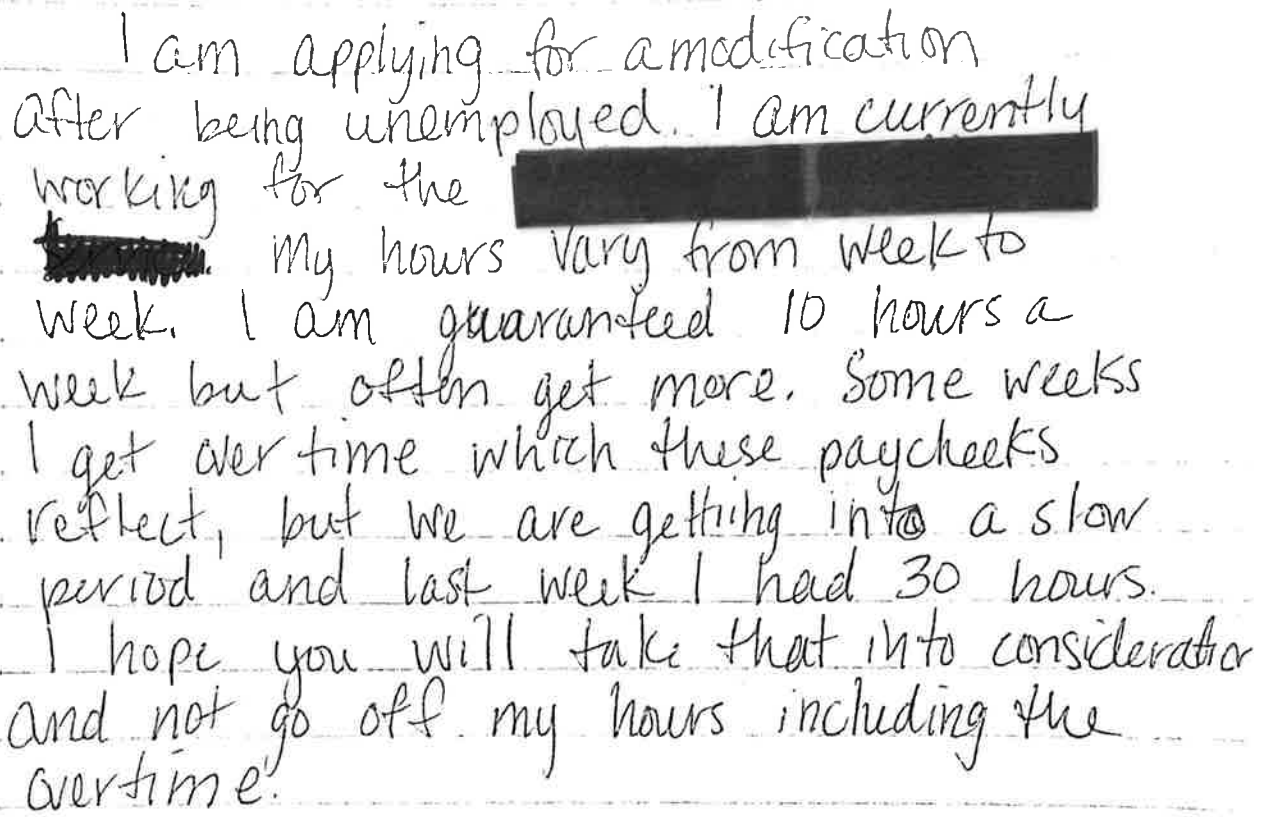 I am applying for a modification
after being unemployed. I am currently
working for the
My hours vary from week to
week. I am guaranteed 10 hours a
week but often get more. Some weeks
I get overtime which these paychecks
reflect, but we are getting into a slow
period and last week I had 30 hours.
I hope you will take that into consideration
and not go off my hours including the
overtime.